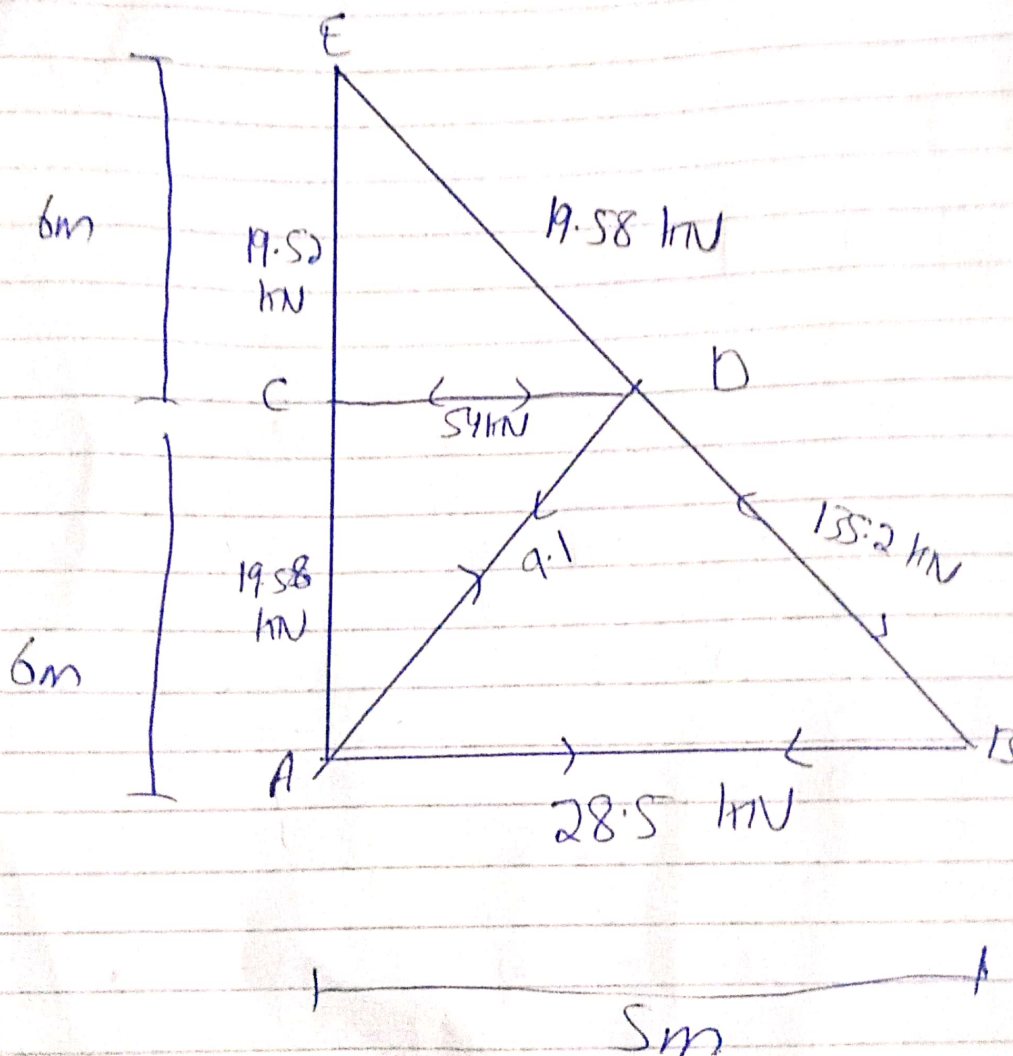 E
6m
19.58 kN
19.52
kN
C
D
54kN
135.2 kN
9.1
19.58
kN
6m
A
B
28.5 kN
5m